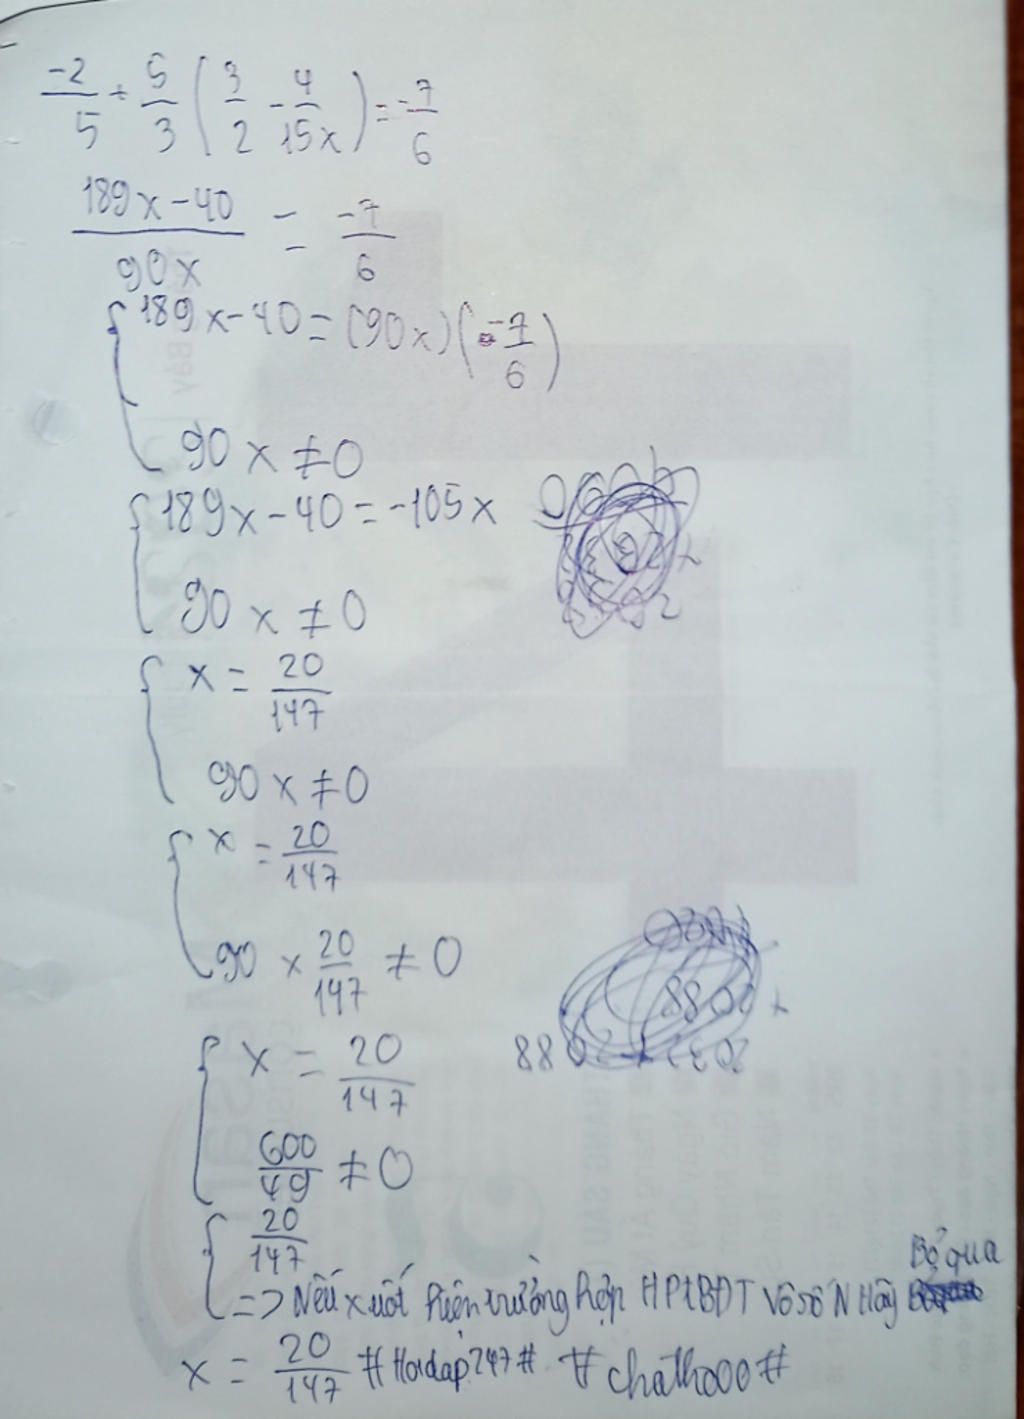 -2/5 + 5/3 (3/2 - 4/15x) = -7/6
189x-40/90x = -7/6
{ 189x-40 = (90x)(-7/6)
90x ≠ 0
{ 189x-40 = -105x
90x ≠ 0
{ x = 20/147
90x ≠ 0
{ x = 20/147
90 x 20/147 ≠ 0
{ x = 20/147
600/49 ≠ 0
{ 20/147
Bỏ qua
=> Nếu xuất hiện trường hợp HPtBĐT vô số N Hãy
x = 20/147 #Hoidap247# #chathooo#